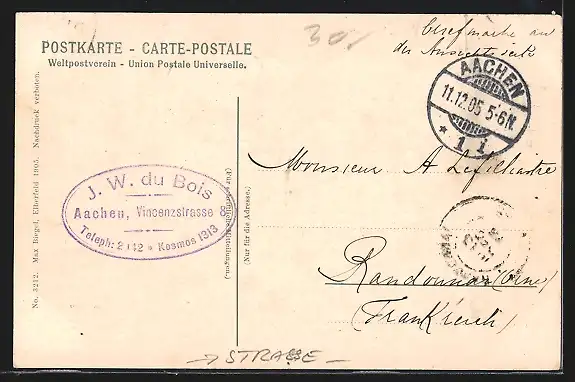 30,
Briefmarke auf
der Ansichtsseite
POSTKARTE - CARTE-POSTALE
Weltpostverein - Union Postale Universelle.
AACHEN
11.12.05 5-6N.
* 1 i.
J. W. du Bois
Aachen, Vincenzstrasse 8
Teleph: 2142 * Kosmos 1313
Monsieur A
Randonnai (Orne)
(Frankreich)
(Nur für die Adresse.)
No. 3212. Max Biegel, Elberfeld 1905. Nachdruck verboten.
→ STRASSE -